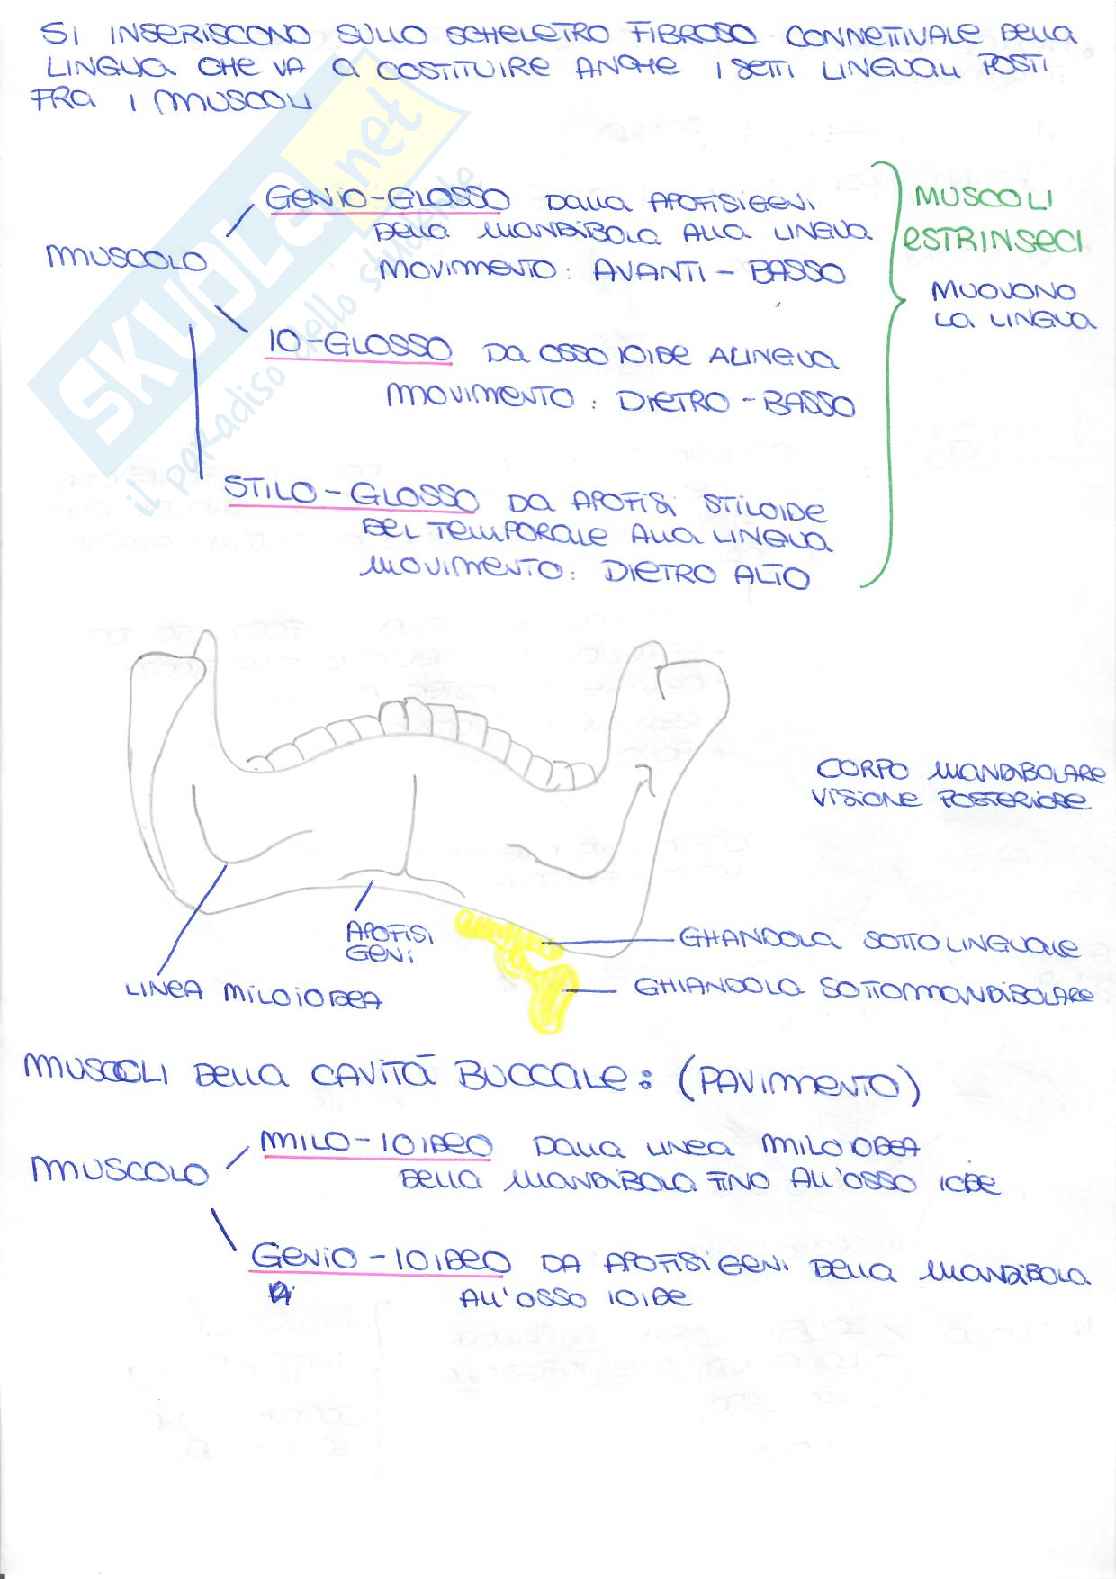 SI INSERISCONO SULLO SCHELETRO FIBROSO CONNETIVALE DELLA
LINGUA CHE VA A COSTITUIRE ANCHE I SETTI LINGUALI POSTI
FRA I MUSCOLI
GENIO-GLOSSO DALLA APOFISI GENI
DELLA MANDIBOLA ALLA LINGUA
MUSCOLO
MOVIMENTO: AVANTI - BASSO
MUSCOLI
ESTRINSECI
MUOVONO
LA LINGUA
IO-GLOSSO DA OSSO IOIDE A LINGUA
MOVIMENTO: DIETRO - BASSO
STILO-GLOSSO DA APOFISI STILOIDE
DEL TEMPORALE ALLA LINGUA
MOVIMENTO: DIETRO ALTO
SKUOLA.net
il paradiso dello studente
CORPO MANDIBOLARE
VISIONE POSTERIORE
APOFISI
GENI
LINEA MILOIOIDEA
GHIANDOLA SOTTOLINGUALE
GHIANDOLA SOTTOMANDIBOLARE
MUSCOLI DELLA CAVITÀ BUCCALE: (PAVIMENTO)
MUSCOLO
MILO-IOIDEO DALLA LINEA MILOIOIDEA
DELLA MANDIBOLA FINO ALL'OSSO IOIDE
GENIO-IOIDEO DA APOFISI GENI DELLA MANDIBOLA
ALL'OSSO IOIDE